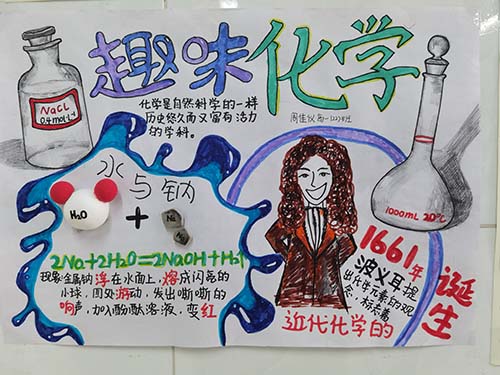 趣味化学
NaCl
0.4mol·L⁻¹
化学是自然科学的一样
历史悠久而又富有活力
的学科。
水与钠
H₂O
+
2Na+2H₂O=2NaOH+H₂↑
现象:金属钠浮在水面上,熔成闪亮的
小球,四处游动,发出嘶嘶的
响声,加入酚酞溶液,变红
1000mL 20℃
1661年
波义耳提
出化学元素的观
念,标志着
近代化学的
诞生